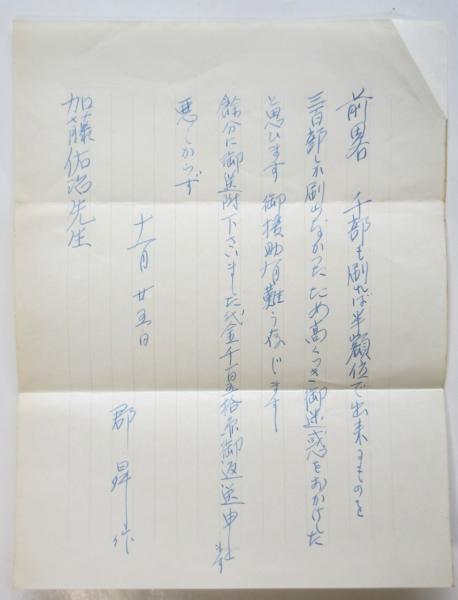 前畧 千部も刷れば半額位で出来るものを
三百部しか刷らなかつたため高くつき御迷惑をおかけした
と思ひます 御援助有難う存じます
餘分に御送附下さいました代金千百五拾円御返送申上
悪しからず
十一月廿五日
郡昇作
加藤佑治先生